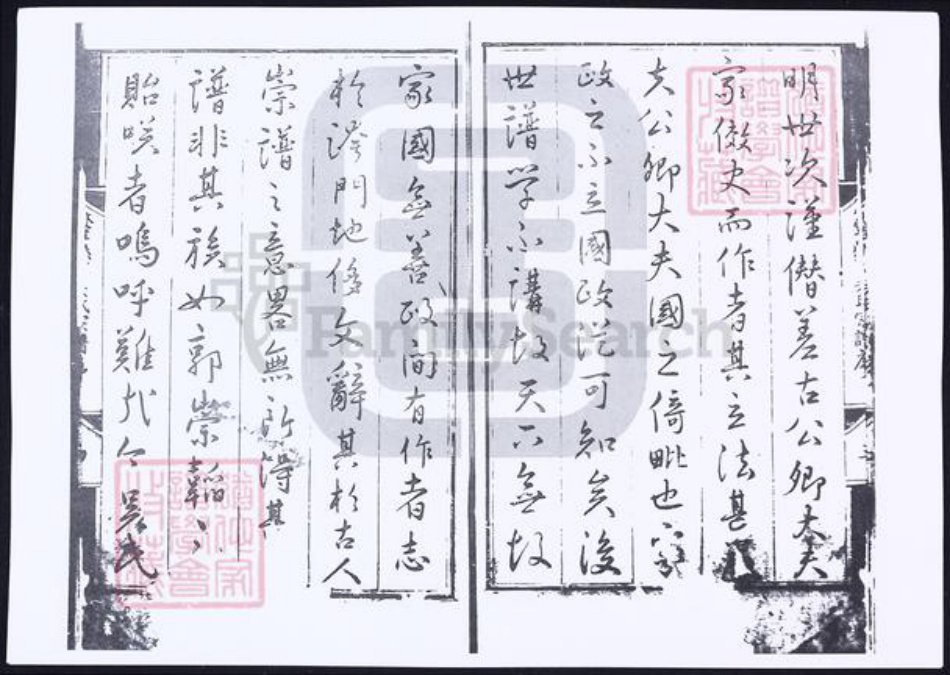 明世次謹僣差古公卿大夫
家倣史而作者其立法甚
夫公卿大夫國之倚毗也家
政之不立國政從可知矣後
世譜学不講故天下無故
家國無善政间有作者志
於誇門地侈文辭其於古人
崇譜之意畧無所得其
譜非其族如郭崇韜
貽咲者嗚呼難哉今吴氏
FamilySearch